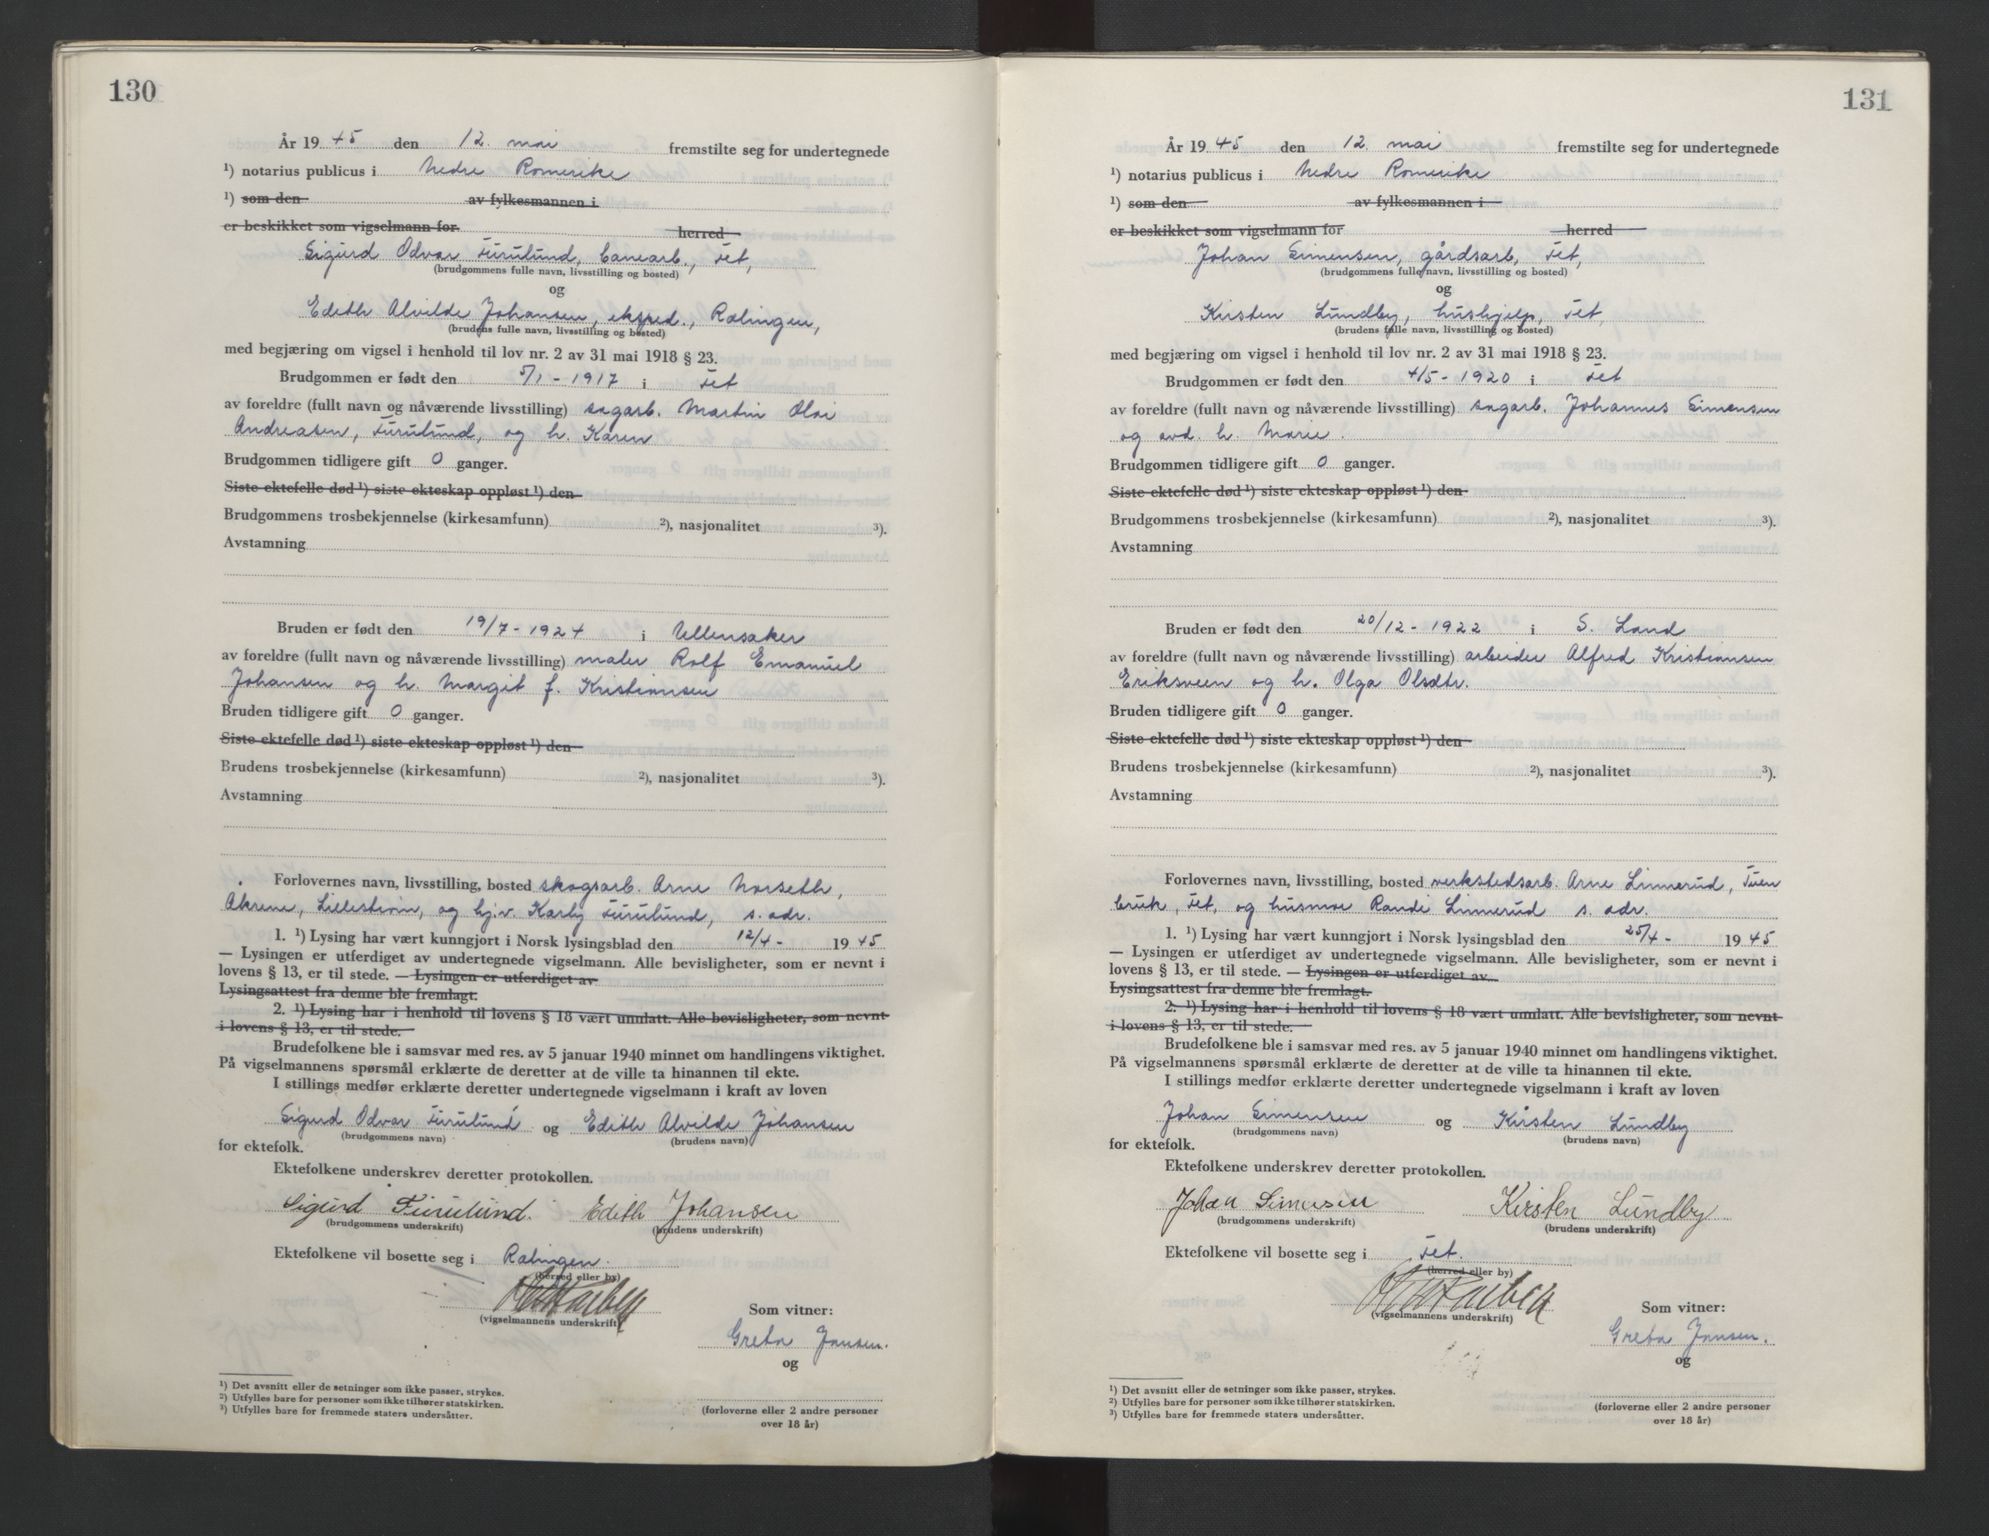 130
År 19 45 den 12. mai fremstilte seg for undertegnede
¹) notarius publicus i Nedre Romerike
¹) som den av fylkesmannen i
er beskikket som vigselmann for herred
Sigurd Odvar Furulund, banearb., Fet,
(brudgommens fulle navn, livsstilling og bosted)
og
Edith Alvilde Johansen, eksped., Rælingen,
(brudens fulle navn, livsstilling og bosted)
med begjæring om vigsel i henhold til lov nr. 2 av 31 mai 1918 § 23.
Brudgommen er født den 5/1 - 1917 i Fet
av foreldre (fullt navn og nåværende livsstilling) sagarb. Martin Olai
Andreasen, Furulund, og h. Karen
Brudgommen tidligere gift 0 ganger.
Siste ektefelle død ¹) siste ekteskap oppløst ¹) den
Brudgommens trosbekjennelse (kirkesamfunn) ²), nasjonalitet ³).
Avstamning
Bruden er født den 19/7 - 1924 i Ullensaker
av foreldre (fullt navn og nåværende livsstilling) maler Rolf Emanuel
Johansen og h. Margit f. Kristiansen
Bruden tidligere gift 0 ganger.
Siste ektefelle død ¹) siste ekteskap oppløst ¹) den
Brudens trosbekjennelse (kirkesamfunn) ²), nasjonalitet ³).
Avstamning
Forlovernes navn, livsstilling, bosted skogsarb. Arne Norseth,
Åkrene, Lillestrøm, og hj.v. Karly Furulund, s. adr.
1. ¹) Lysing har vært kunngjort i Norsk lysingsblad den 12/4 - 19 45
— Lysingen er utferdiget av undertegnede vigselmann. Alle bevisligheter, som er nevnt i
lovens § 13, er til stede. — Lysingen er utferdiget av
Lysingsattest fra denne ble fremlagt.
2. ¹) Lysing har i henhold til lovens § 18 vært unnlatt. Alle bevisligheter, som nevnt
i lovens § 13, er til stede.
Brudefolkene ble i samsvar med res. av 5 januar 1940 minnet om handlingens viktighet.
På vigselmannens spørsmål erklærte de deretter at de ville ta hinannen til ekte.
I stillings medfør erklærte deretter undertegnede vigselmann i kraft av loven
Sigurd Odvar Furulund og Edith Alvilde Johansen
(brudgommens navn) (brudens navn)
for ektefolk.
Ektefolkene underskrev deretter protokollen.
Sigurd Furulund. Edith Johansen
(brudgommens underskrift) (brudens underskrift)
Ektefolkene vil bosette seg i Rælingen.
(herred eller by)
(vigselmannens underskrift)
Som vitner:
Greta Jansen.
og
¹) Det avsnitt eller de setninger som ikke passer, strykes.
²) Utfylles bare for personer som ikke tilhører statskirken.
³) Utfylles bare for fremmede staters undersåtter.
(forloverne eller 2 andre personer
over 18 år)
131
År 19 45 den 12. mai fremstilte seg for undertegnede
¹) notarius publicus i Nedre Romerike
¹) som den av fylkesmannen i
er beskikket som vigselmann for herred
Johan Simensen, gårdsarb, Fet,
(brudgommens fulle navn, livsstilling og bosted)
og
Kirsten Lundby, hushjelp, Fet,
(brudens fulle navn, livsstilling og bosted)
med begjæring om vigsel i henhold til lov nr. 2 av 31 mai 1918 § 23.
Brudgommen er født den 4/5 - 1920 i Fet
av foreldre (fullt navn og nåværende livsstilling) sagarb. Johannes Simensen
og avd. h. Marie.
Brudgommen tidligere gift 0 ganger.
Siste ektefelle død ¹) siste ekteskap oppløst ¹) den
Brudgommens trosbekjennelse (kirkesamfunn) ²), nasjonalitet ³).
Avstamning
Bruden er født den 20/12 - 1922 i S. Land
av foreldre (fullt navn og nåværende livsstilling) arbeider Alfred Kristiansen
Eriksveen og h. Olga Olsdtr.
Bruden tidligere gift 0 ganger.
Siste ektefelle død ¹) siste ekteskap oppløst ¹) den
Brudens trosbekjennelse (kirkesamfunn) ²), nasjonalitet ³).
Avstamning
Forlovernes navn, livsstilling, bosted verkstedsarb. Arne Linnerud, Tuen
bruk, Fet, og husmor Randi Linnerud s. adr.
1. ¹) Lysing har vært kunngjort i Norsk lysingsblad den 25/4 - 19 45
— Lysingen er utferdiget av undertegnede vigselmann. Alle bevisligheter, som er nevnt i
lovens § 13, er til stede. — Lysingen er utferdiget av
Lysingsattest fra denne ble fremlagt.
2. ¹) Lysing har i henhold til lovens § 18 vært unnlatt. Alle bevisligheter, som nevnt
i lovens § 13, er til stede.
Brudefolkene ble i samsvar med res. av 5 januar 1940 minnet om handlingens viktighet.
På vigselmannens spørsmål erklærte de deretter at de ville ta hinannen til ekte.
I stillings medfør erklærte deretter undertegnede vigselmann i kraft av loven
Johan Simensen og Kirsten Lundby
(brudgommens navn) (brudens navn)
for ektefolk.
Ektefolkene underskrev deretter protokollen.
Johan Simensen Kirsten Lundby
(brudgommens underskrift) (brudens underskrift)
Ektefolkene vil bosette seg i Fet.
(herred eller by)
(vigselmannens underskrift)
Som vitner:
Greta Jansen.
og
¹) Det avsnitt eller de setninger som ikke passer, strykes.
²) Utfylles bare for personer som ikke tilhører statskirken.
³) Utfylles bare for fremmede staters undersåtter.
(forloverne eller 2 andre personer
over 18 år)